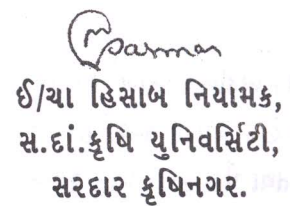 ઈ/ચા હિસાબ નિયામક,
સ.દાં.કૃષિ યુનિવર્સિટી,
સરદાર કૃષિનગર.